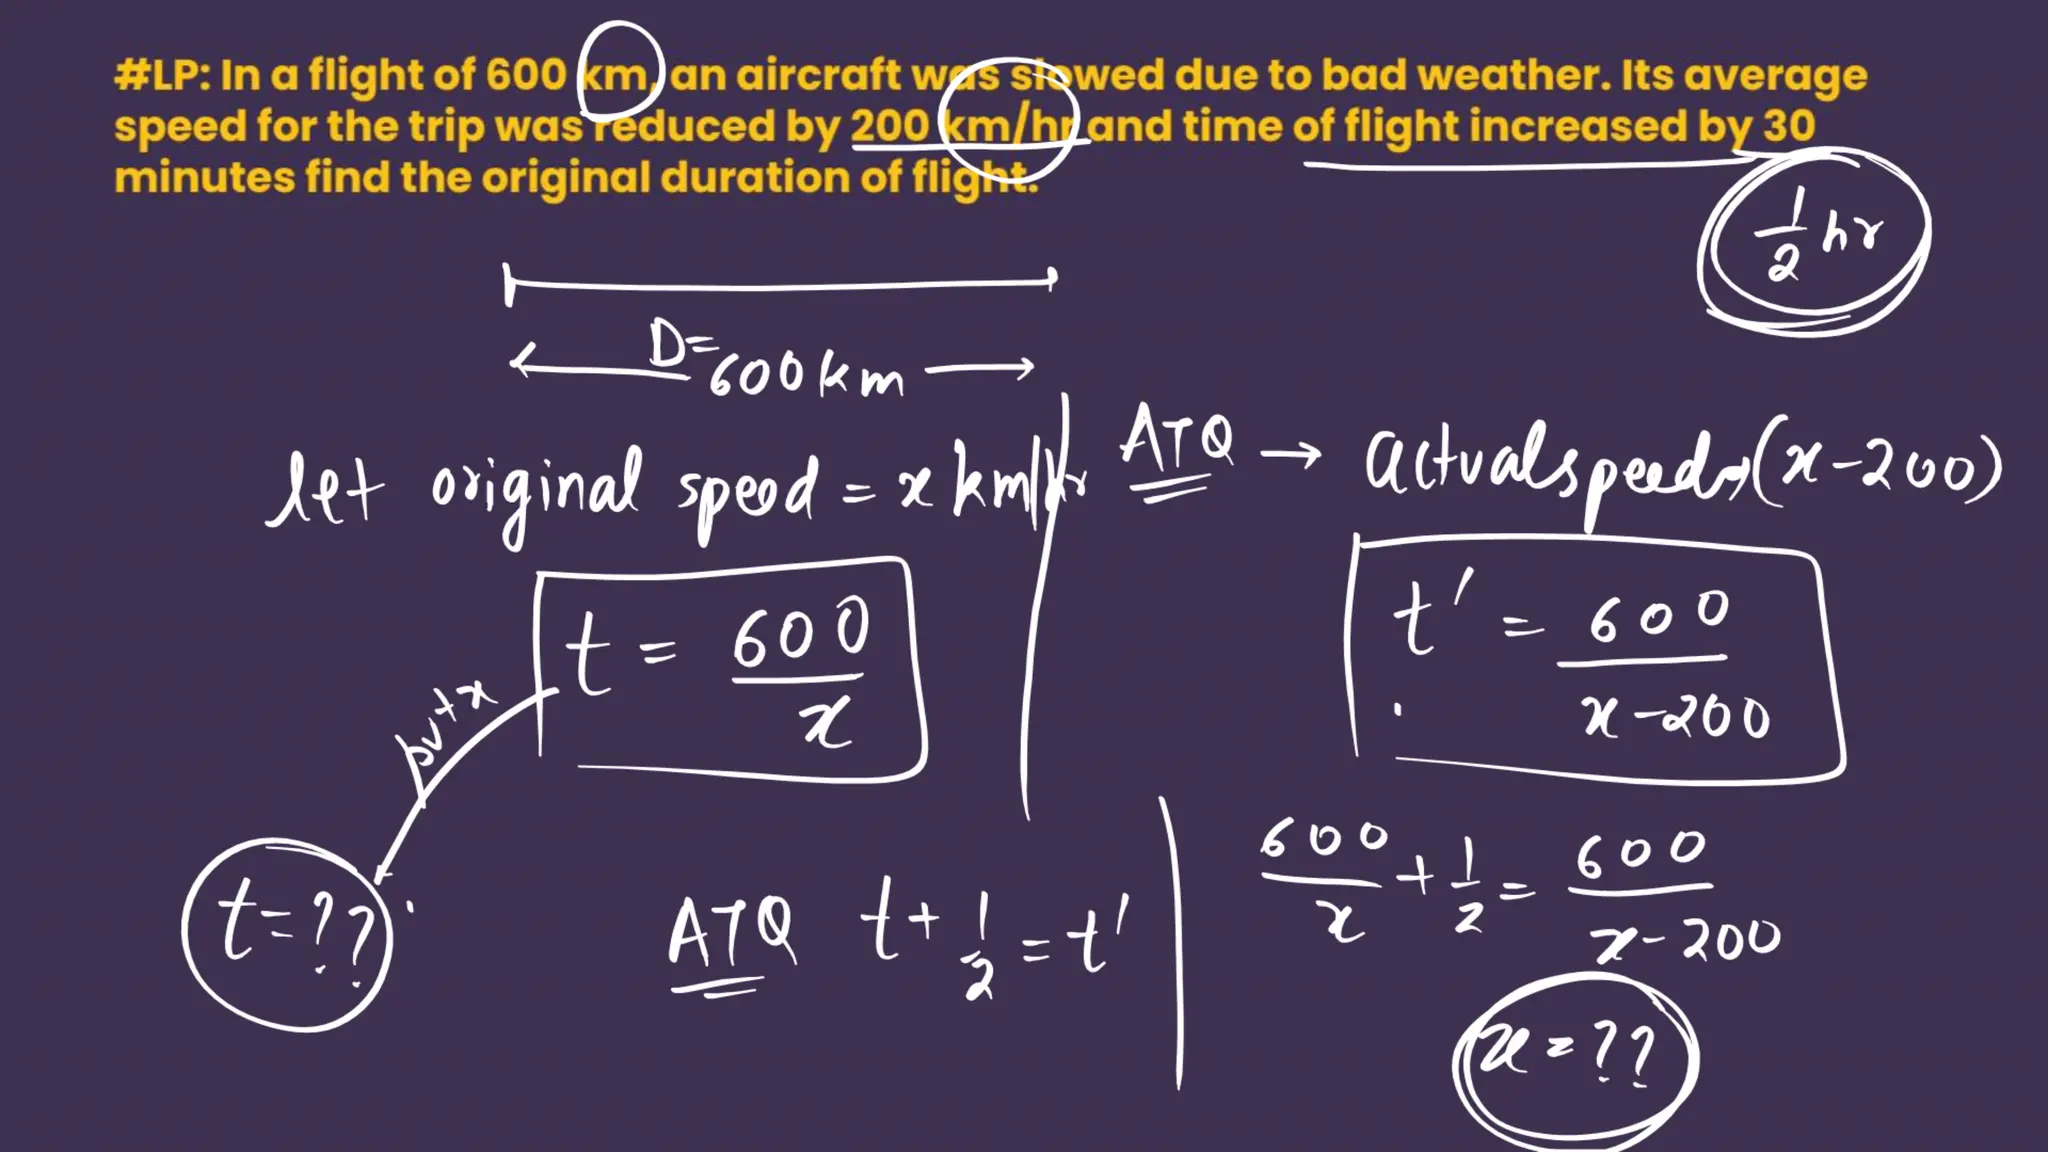 #LP: In a flight of 600 km, an aircraft was slowed due to bad weather. Its average
speed for the trip was reduced by 200 km/hr and time of flight increased by 30
minutes find the original duration of flight.
1/2 hr
D=
600 km
let original speed = x km/hr
ATQ → actual speed (x-200)
t = 600/x
t' = 600/x-200
put x
t=??
ATQ t+1/2=t'
600/x + 1/2 = 600/x-200
x=??